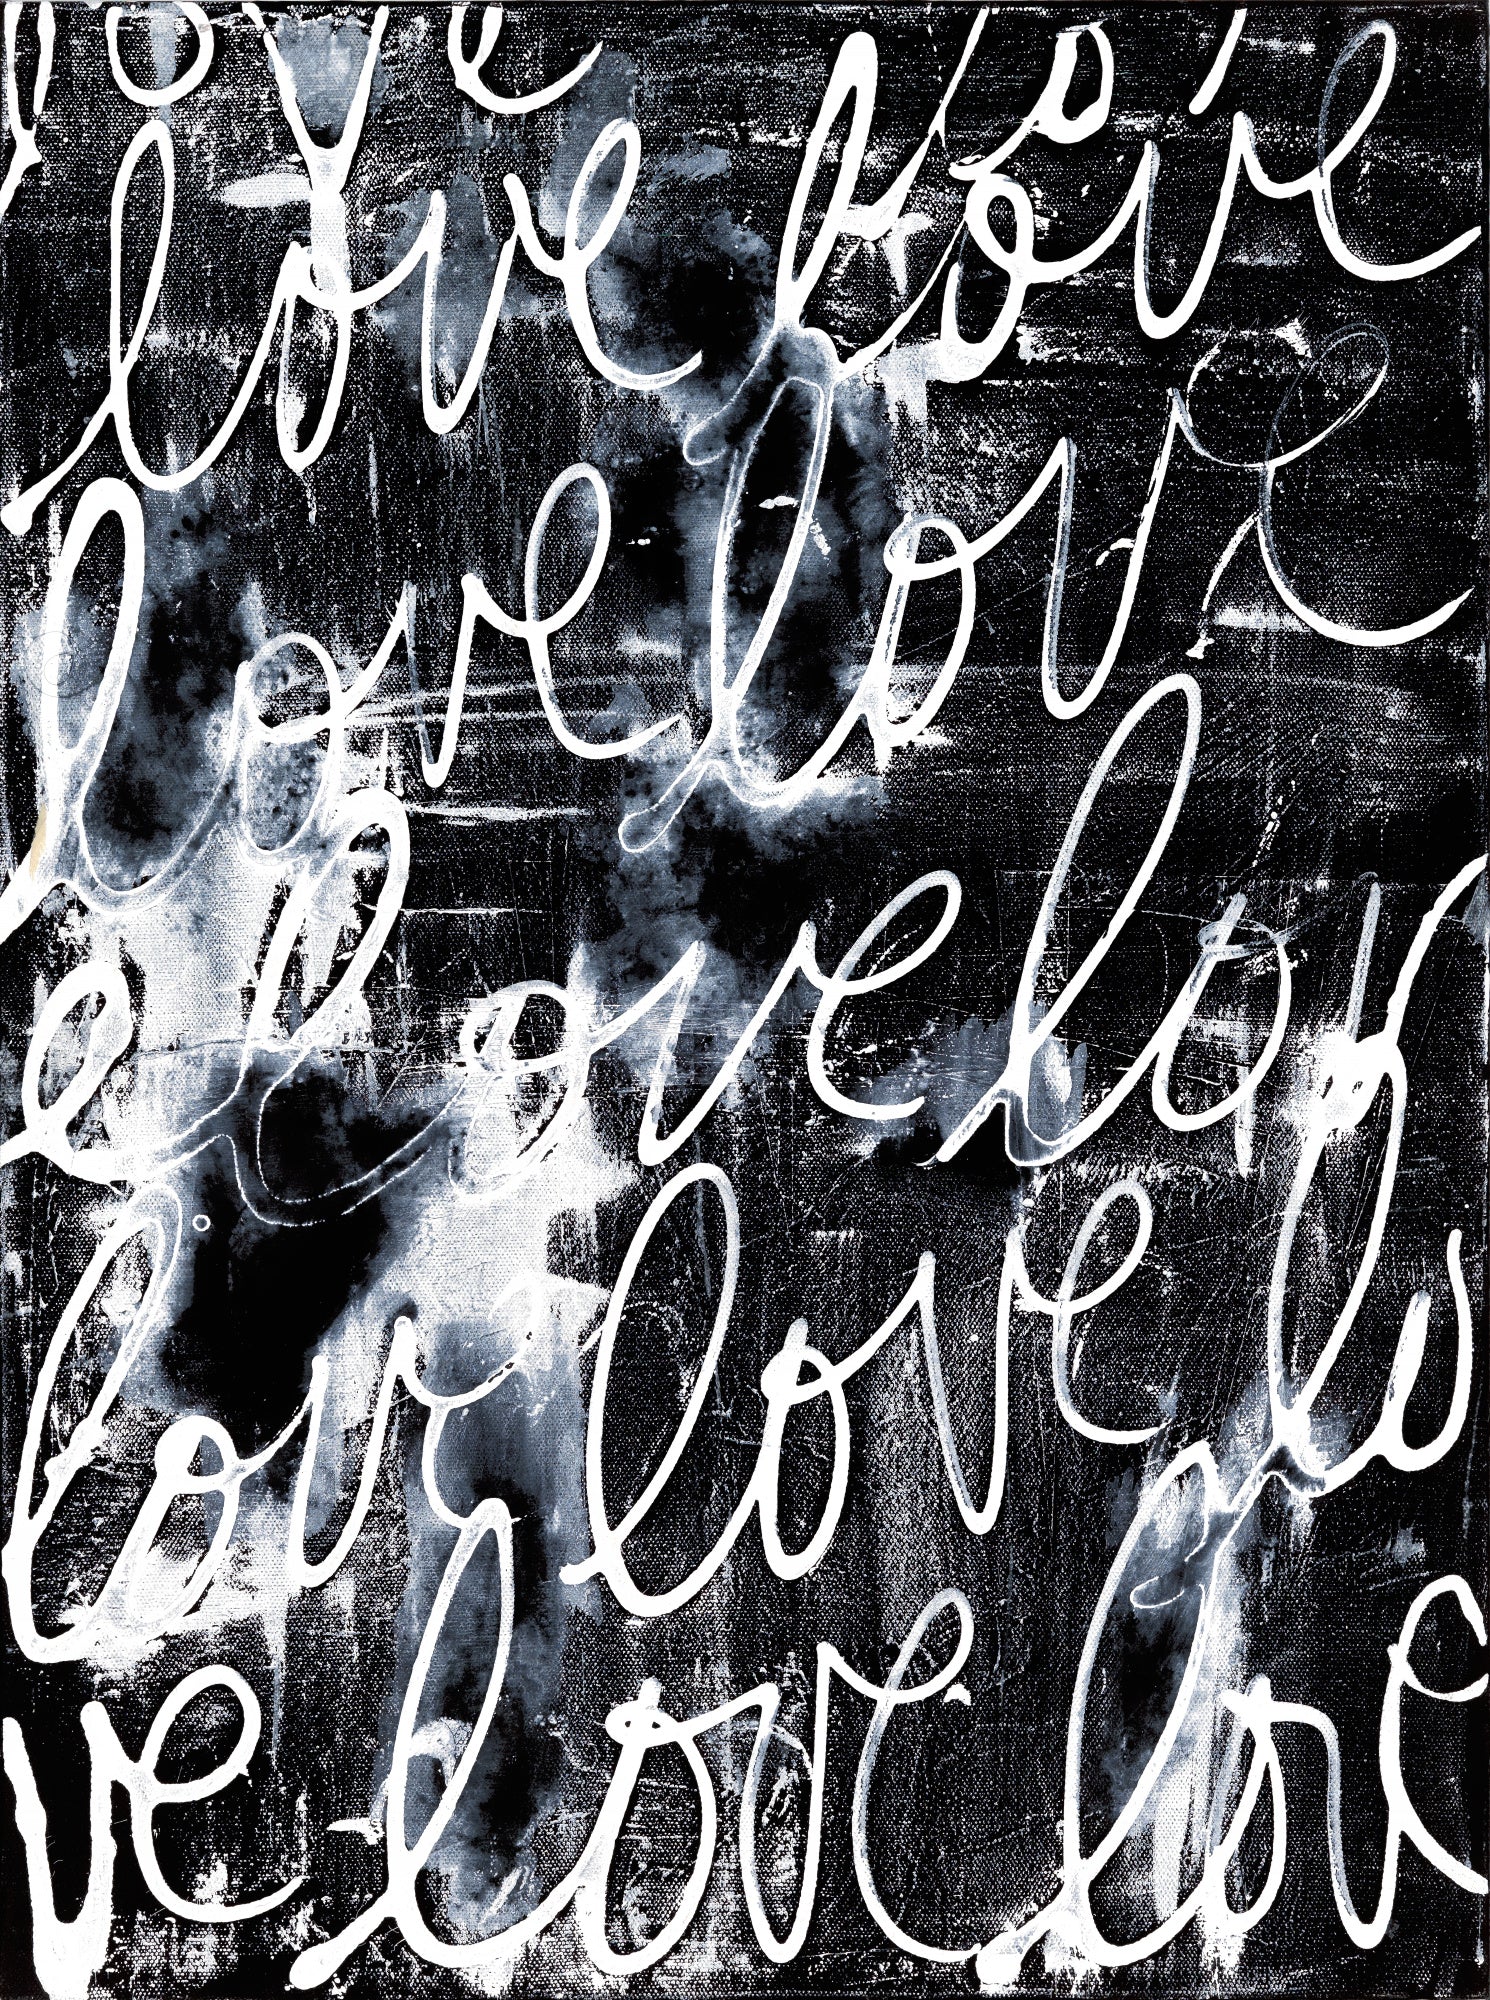 love lo
love love
love love
e love lov
love love lo
ve love love